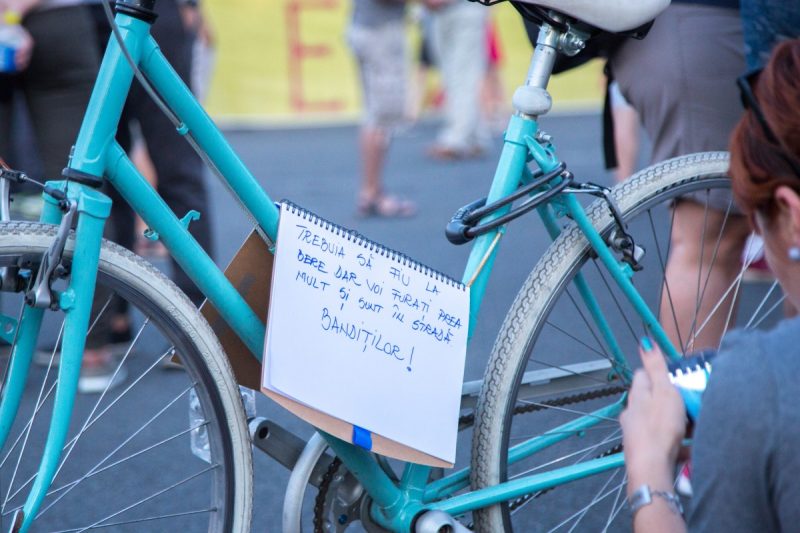 E
TREBUIA SĂ FIU LA
BERE DAR VOI FURAȚI PREA
MULT ȘI SUNT ÎN STRADĂ.
BANDIȚILOR!